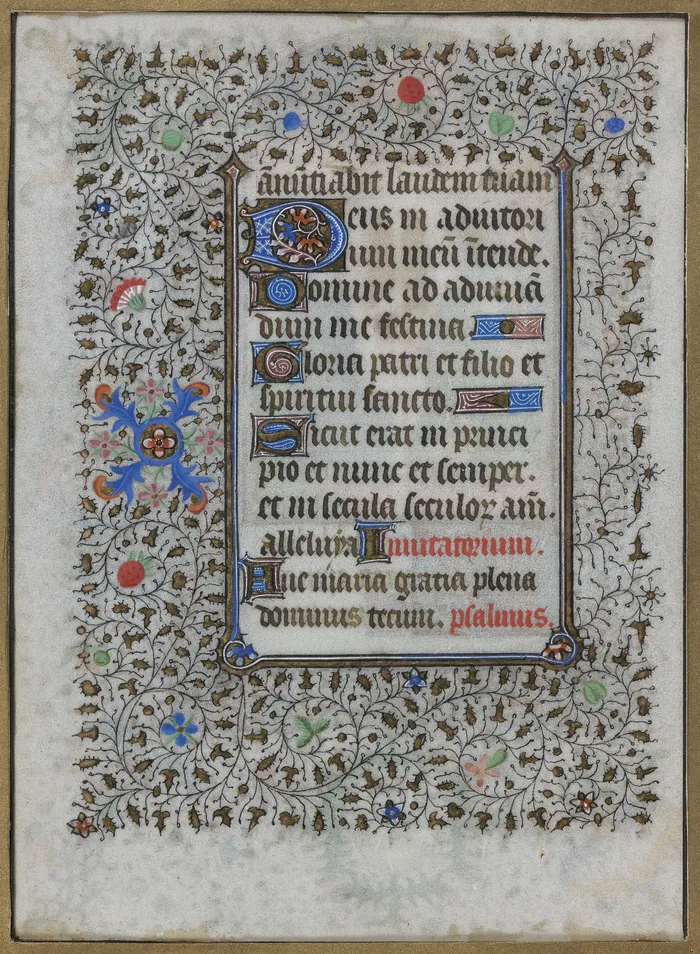 ānūtiabit laudem tuam
Deus in adiutori
um meū ītende.
Domine ad adiuuā
dum me festina
Gloria patri et filio et
spiritui sancto.
Sicut erat in princi
pio et nunc et semper.
et in secula seculoꝝ am̄.
alleluya Inuitatorium.
Aue maria gratia plena
dominus tecum. psalmus.